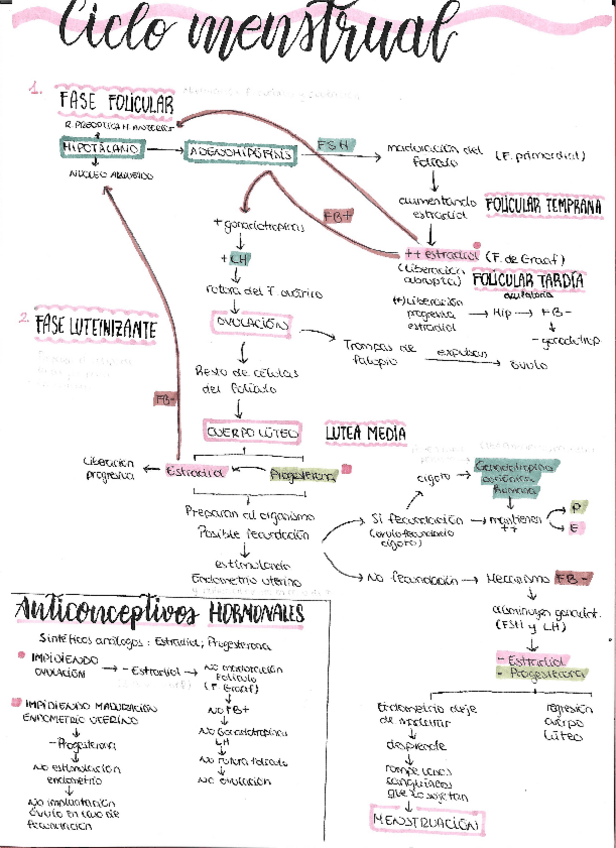 Ciclo menstrual
1.
FASE FOLICULAR
HIPOTÁLAMO
ADENOHIPÓFISIS
FSH
maduración del
folículo
(F. primordial)
aumentando
estradiol
FOLICULAR TEMPRANA
FB+
++ estradiol (F. de Graaf)
(Liberación
abrupta)
FOLICULAR TARDÍA
ovulatoria
(+)Liberación
progresiva
estradiol
Hip
FB-
+ gonadotropinas
+ LH
rotura del F. ovárico
OVULACIÓN
Trompas de
Falopio
expulsan
óvulo
2.
FASE LUTEINIZANTE
Resto de células
del folículo
FB-
CUERPO LÚTEO
LUTEA MEDIA
Liberación
progresiva
Estradiol
Progesterona
Preparan al organismo
Posible fecundación
estimulando
Endometrio uterino
cigoto
Gonadotropina
coriónica
humana
Si fecundación
mantienen
++
P
E
No fecundación
Mecanismo FB-
disminuyen gonadot.
(FSH y LH)
- Estradiol
- Progesterona
Endometrio deje
de
desprende
rompe vasos
sanguíneos
que lo sujetan
MENSTRUACIÓN
regresión
cuerpo
lúteo
Anticonceptivos HORMONALES
Sintéticos análogos: Estradiol; Progesterona
IMPIDIENDO
OVULACIÓN
- Estradiol
No maduración
Folículo
(F. Graaf)
No FB+
No Gonadotropinas
LH
No rotura folículo
No ovulación
IMPIDIENDO MADURACIÓN
ENDOMETRIO UTERINO
- Progesterona
No estimulación
endometrio
No implantación
óvulo en caso de
fecundación